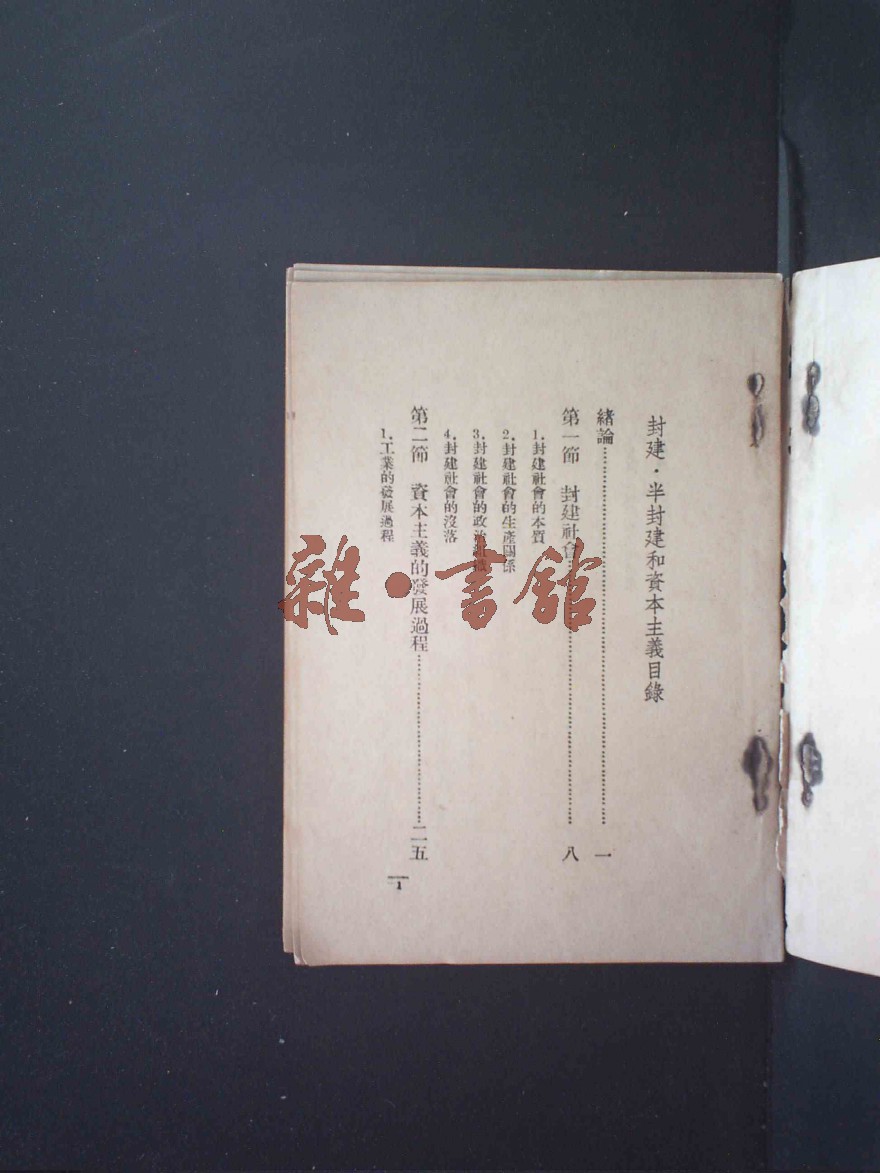 封建·半封建和資本主義目錄
緒論……一
第一節 封建社會……八
1.封建社會的本質
2.封建社會的生產關係
3.封建社會的政治組織
4.封建社會的沒落
第二節 資本主義的發展過程……二五
1.工業的發展過程
1
雜·書館